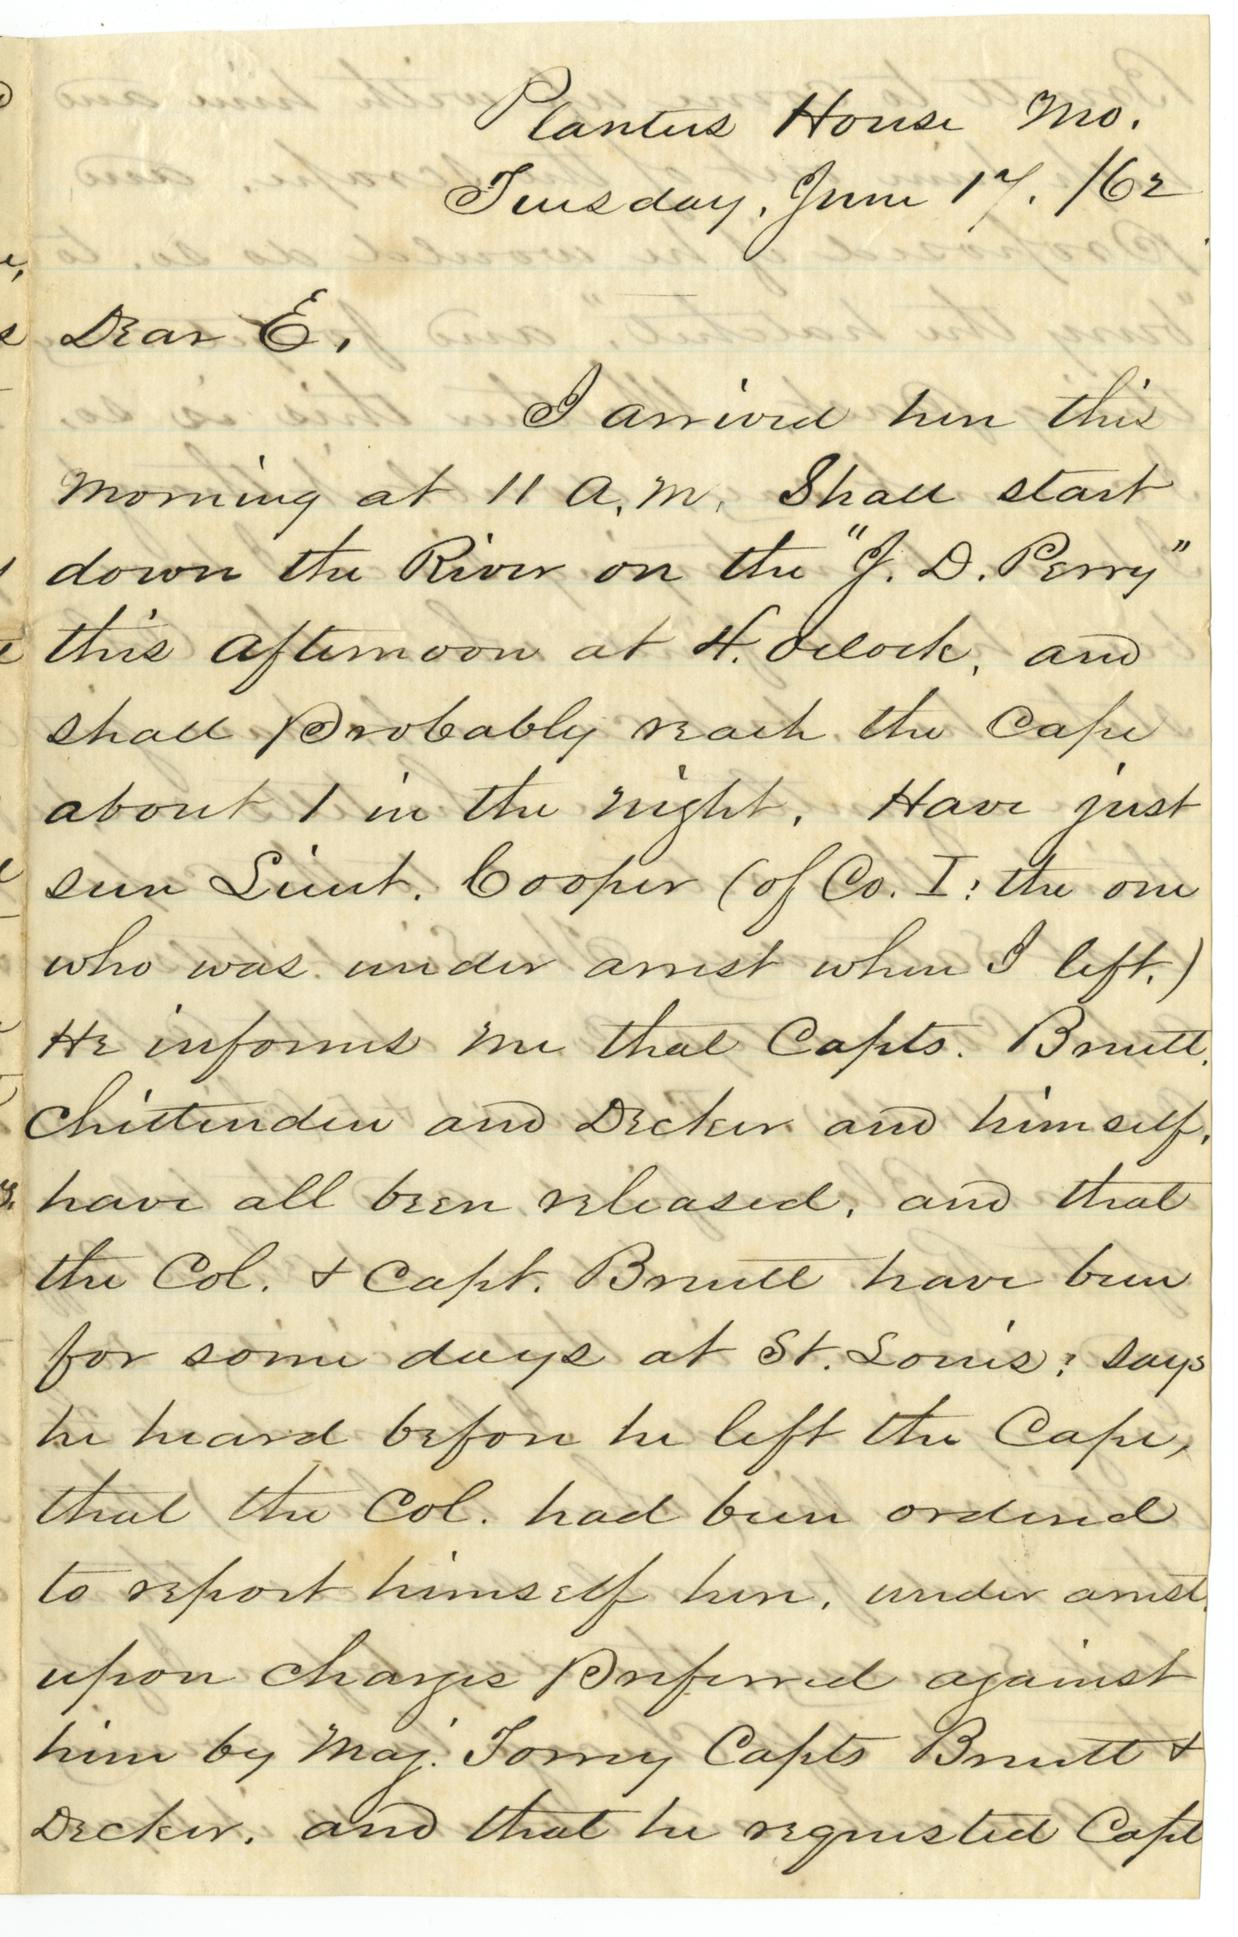 Planters House Mo.
Tuesday, June 17. /62
Dear E,
I arrived here this
morning at 11 A.M. Shall start
down the River on the "J. D. Perry"
this afternoon at 4. Oclock, and
shall Probably reach the Cape
about 1 in the night. Have just
seen Lieut. Cooper (of Co. I: the one
who was under arrest when I left.)
He informs me that Capts. Bruett.
Chittenden and Decker and himself,
have all been released, and that
the Col. & Capt. Bruett have been
for some days at St. Louis: says
he heard before he left the Cape,
that the Col. had been ordered
to report himself here, under arrest.
upon charges Preferred against
him by Maj. Torrey Capts Bruett &
Decker. and that he requested Capt